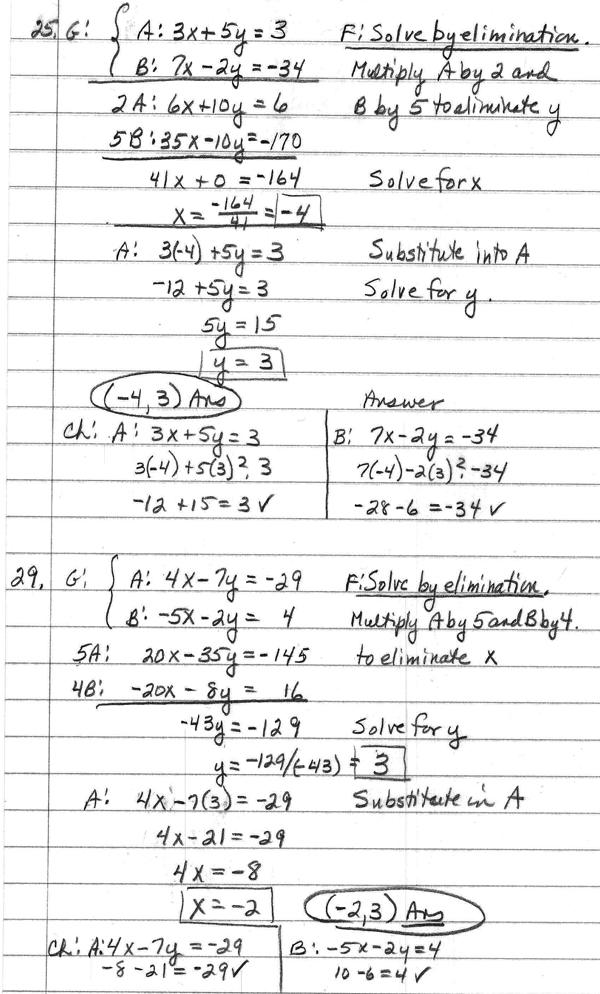 25. G: { A: 3x+5y = 3 F: Solve by elimination.
B: 7x-2y = -34 Multiply A by 2 and
2A: 6x+10y = 6 B by 5 to eliminate y
5B: 35x-10y = -170
41x + 0 = -164 Solve for x
x = -164/41 = -4
A: 3(-4) + 5y = 3 Substitute into A
-12 + 5y = 3 Solve for y.
5y = 15
y = 3
(-4, 3) Ans Answer
Ch: A: 3x+5y = 3 B: 7x-2y = -34
3(-4) + 5(3) ?= 3 7(-4)-2(3) ?= -34
-12 + 15 = 3 ✓ -28 - 6 = -34 ✓
29. G: { A: 4x-7y = -29 F: Solve by elimination.
B: -5x-2y = 4 Multiply A by 5 and B by 4.
5A: 20x-35y = -145 to eliminate x
4B: -20x - 8y = 16
-43y = -129 Solve for y
y = -129/(-43) = 3
A: 4x-7(3) = -29 Substitute in A
4x-21 = -29
4x = -8
x = -2 (-2,3) Ans
Ch: A: 4x-7y = -29 B: -5x-2y = 4
-8 -21 = -29 ✓ 10 -6 = 4 ✓